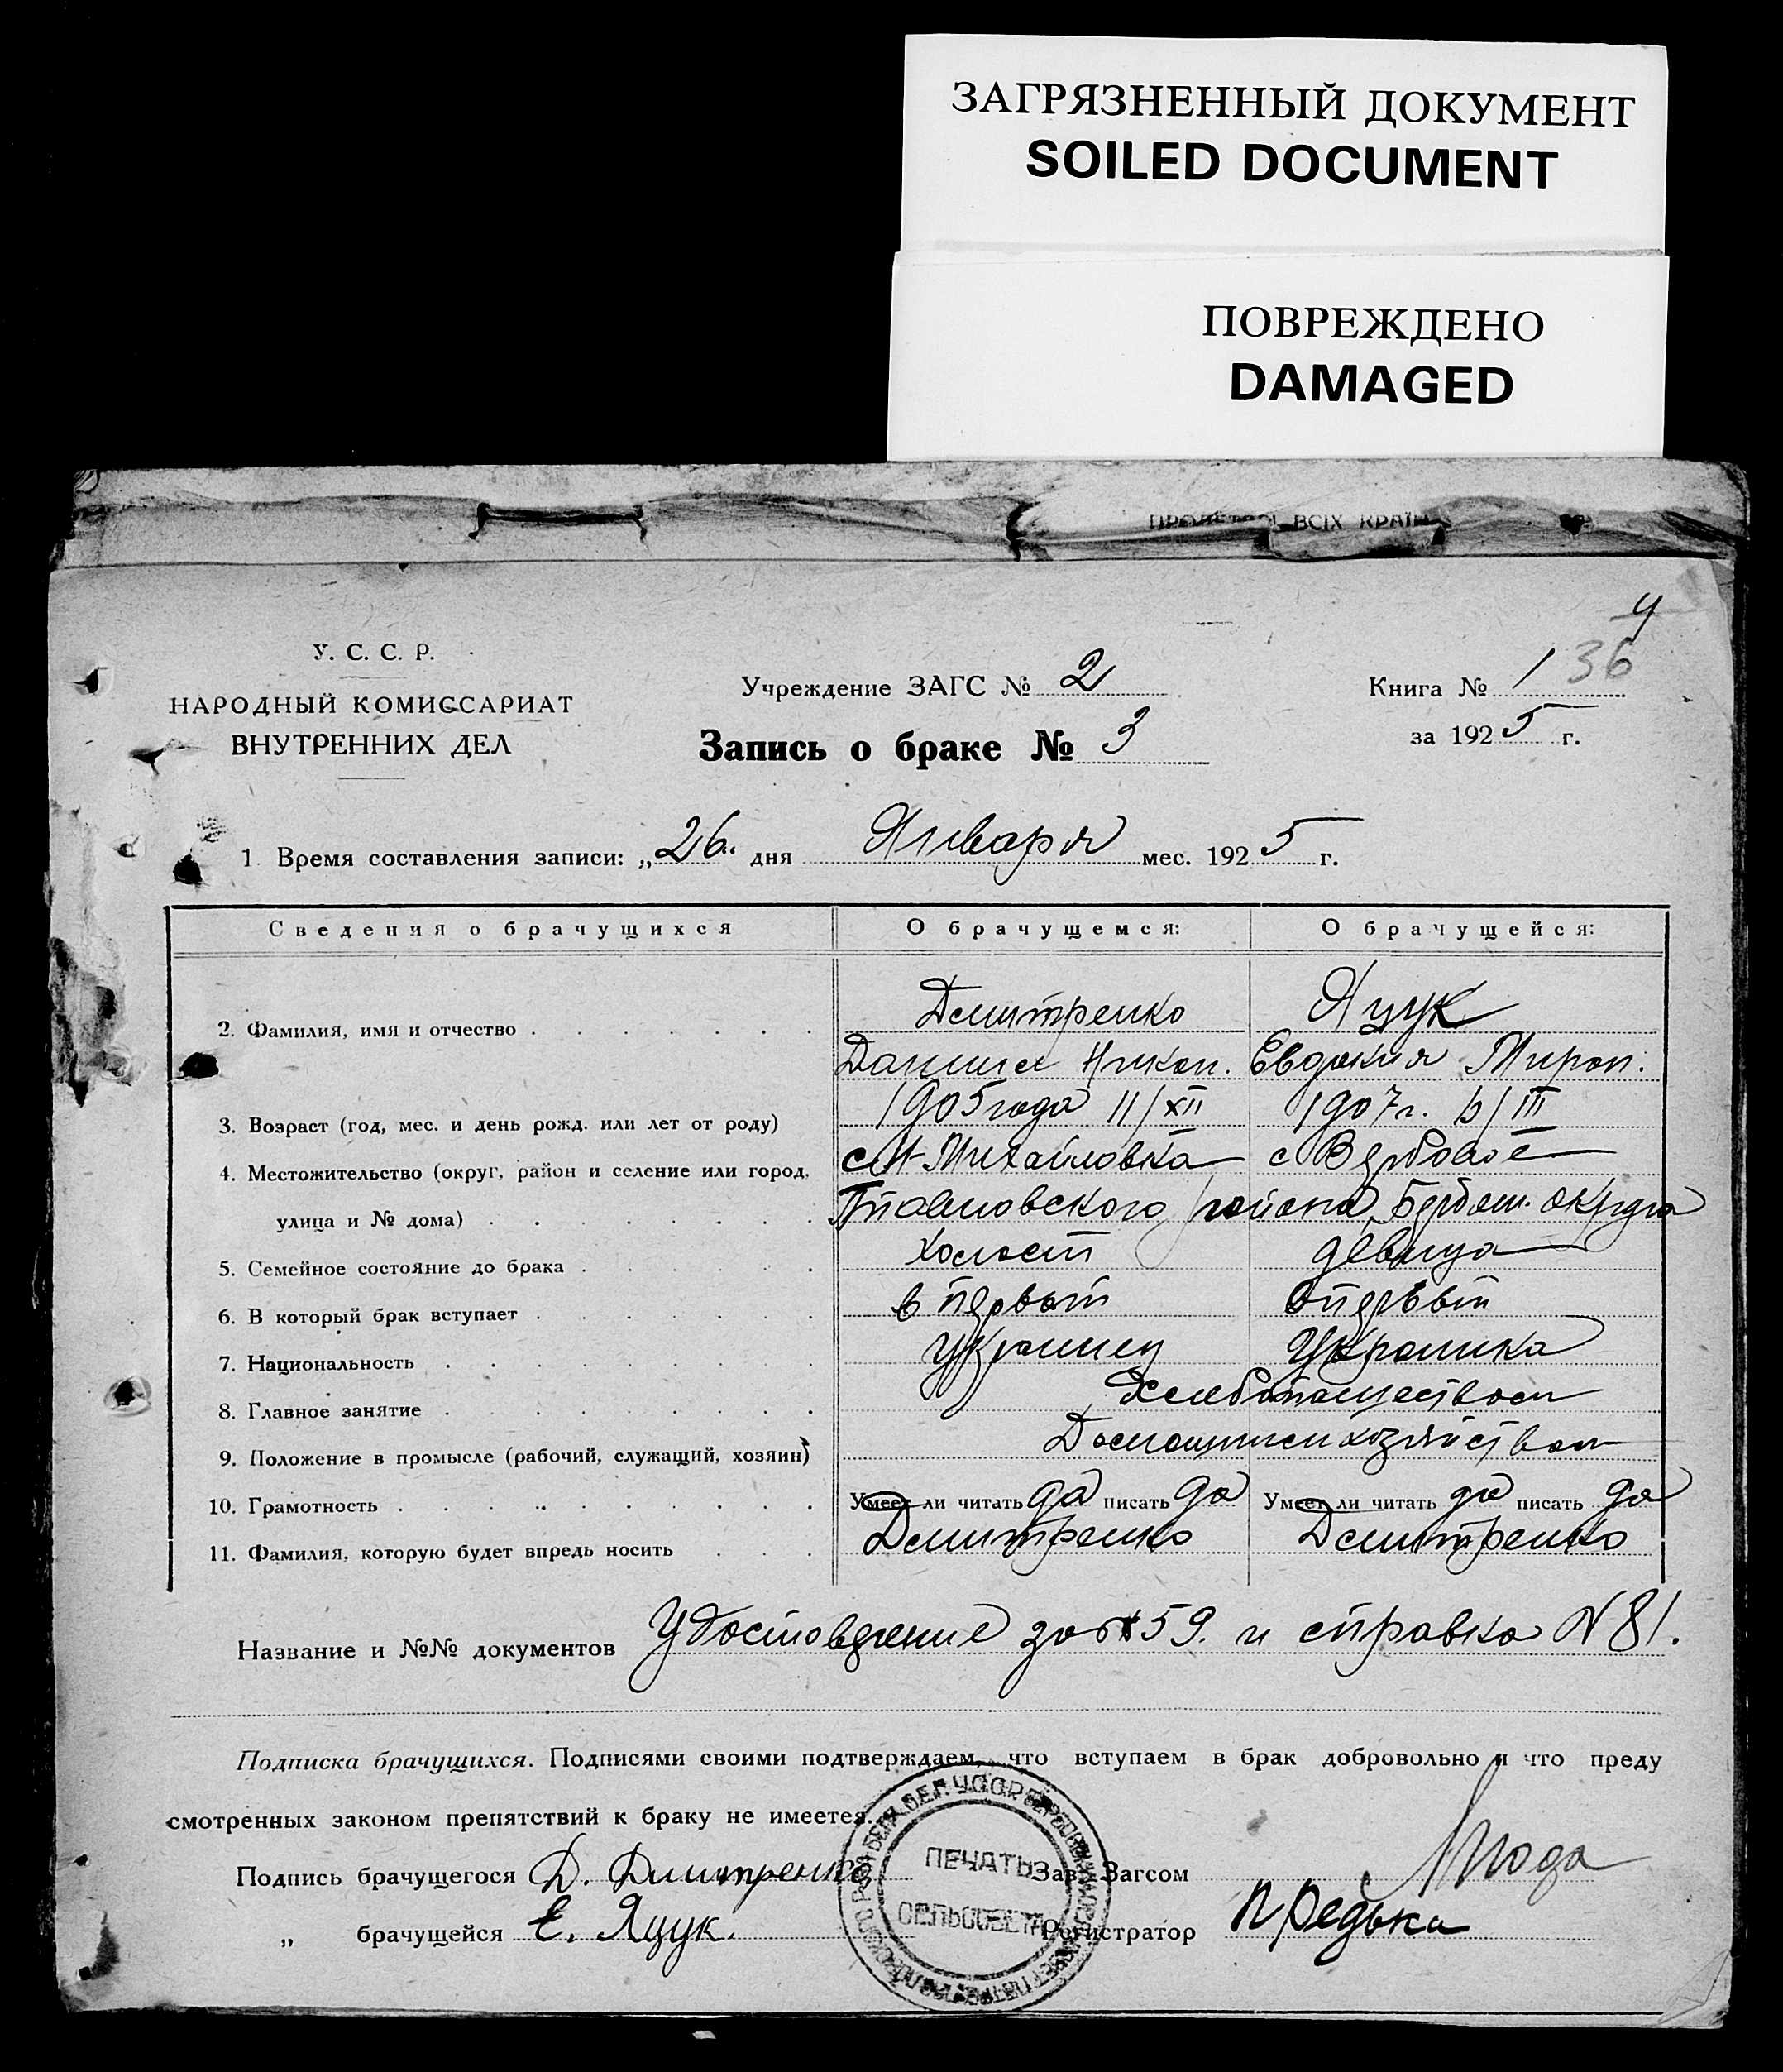 ЗАГРЯЗНЕННЫЙ ДОКУМЕНТ
SOILED DOCUMENT
ПОВРЕЖДЕНО
DAMAGED
ВСІХ КРАЇН
4
36
У. С. С. Р.
НАРОДНЫЙ КОМИССАРИАТ
ВНУТРЕННИХ ДЕЛ
Учреждение ЗАГС № 2
Книга № 1
Запись о браке № 3
за 1925 г.
1. Время составления записи: „26" дня Января мес. 1925 г.
Сведения о брачущихся О брачущемся: О брачущейся:
Дмитренко Яцук
2. Фамилия, имя и отчество
Даниил Никон. Евдокия Мирон.
3. Возраст (год, мес. и день рожд. или лет от роду) 1905 года 11/XII 1907 г. /III
4. Местожительство (округ, район и селение или город, с Н-Михайловка с Вербовое
улица и № дома) района Бердян. округа
5. Семейное состояние до брака холост девица
6. В который брак вступает в первый в первый
7. Национальность украинец Украинка
8. Главное занятие Хлебопашеством
9. Положение в промысле (рабочий, служащий, хозяин) Домашним хозяйством
10. Грамотность Умеет ли читать да писать да Умеет ли читать да писать да
11. Фамилия, которую будет впредь носить Дмитренко Дмитренко
Название и №№ документов Удостоверение за № 59. и справка № 81.
Подписка брачущихся. Подписями своими подтверждаем, что вступаем в брак добровольно и что преду
смотренных законом препятствий к браку не имеется.
Подпись брачущегося Д. Дмитренко Зав. Загсом
„ брачущейся Е. Яцук. Регистратор П Редька
ПЕЧАТЬ
СЕЛЬСОВЕТА